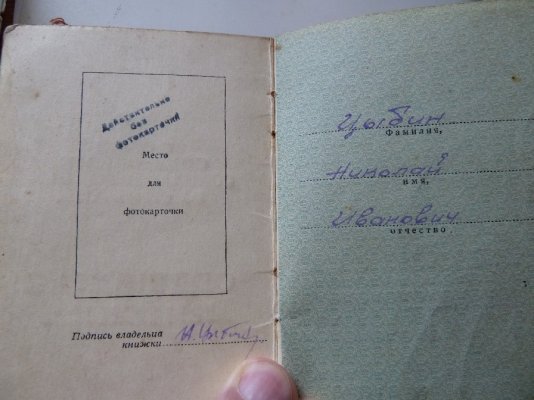 Действительно
без
фотокарточки
Место
для
фотокарточки
Подпись владельца
книжки
Н. Цыбин
Цыбин
Фамилия,
Николай
имя,
Иванович
отчество